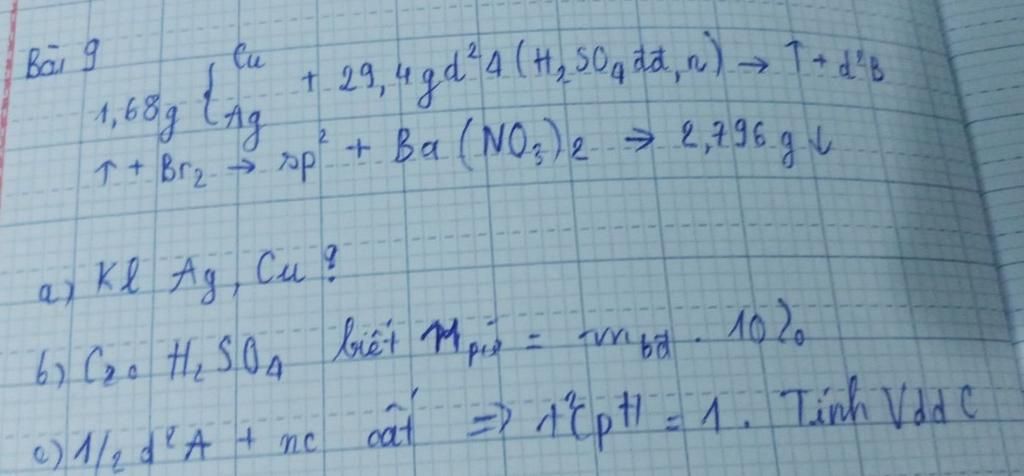 Bài 9
1,68g { Cu Ag + 29,4g d² A (H₂SO₄ đđ, n) → ↑ + d²B
↑ + Br₂ → sp² + Ba(NO₃)₂ → 2,796g ↓
a) Kl Ag, Cu ?
b) C% H₂SO₄ biết npứ = mbđ . 10%
c) 1/2 d² A + nc cất ⇒ d²C pH = 1. Tính Vdd C